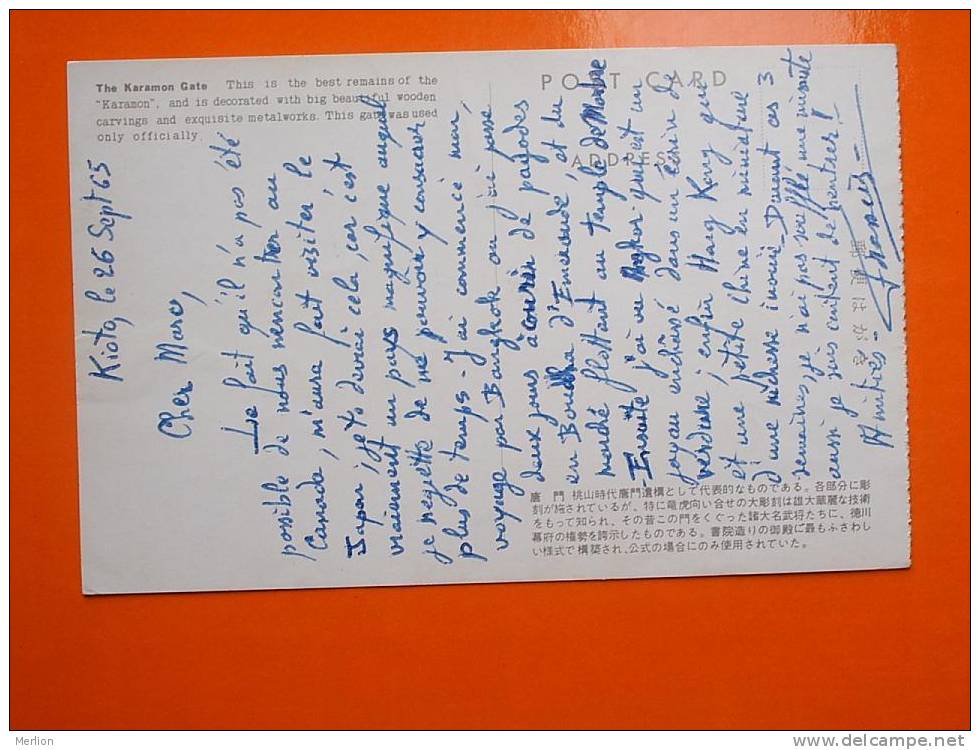 The Karamon Gate This is the best remains of the
"Karamon", and is decorated with big beautiful wooden
carvings and exquisite metalworks. This gate was used
only officially.
POST CARD
ADDRESS
Kioto, le 26 Sept 65
Cher Marc,
Le fait qu'il n'a pas été
possible de nous rencontrer au
Canada, m'aura fait visiter le
Japon ; je te devrai cela, car c'est
vraiment un pays magnifique auquel
je regrette de ne pouvoir y consacrer
plus de temps - J'ai commencé mon
voyage par Bangkok où j'ai passé
deux jours à courir de pagodes
en Boudha d'Emeraude, et du
marché flottant au temple de Marbre
Ensuite j'ai vu Angkor qui est un
joyau enchâssé dans un écrin de
verdure ; enfin Hong Kong qui
est une petite Chine en miniature
d'une richesse inouïe. Durant ces 3
semaines, je n'ai pas soufflé une minute
aussi je suis content de rentrer !
Amitiés -
唐門 桃山時代唐門遺構として代表的なものである。各部分に彫
刻が施されているが、特に竜虎向い合せの大彫刻は雄大華麗な技術
をもって知られ、その昔この門をくぐった諸大名武将たちに、徳川
幕府の権勢を誇示したものである。書院造りの御殿に最もふさわし
い様式で構築され、公式の場合にのみ使用されていた。
郵便はがき
Merlion
www.delcampe.net